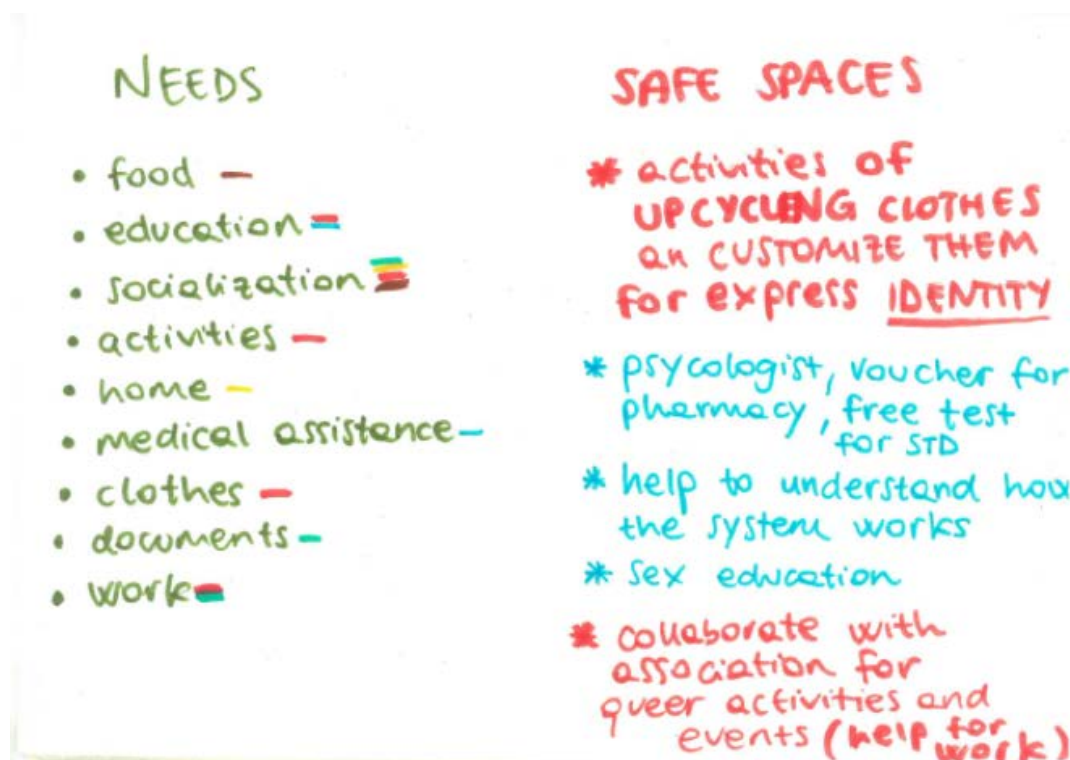 NEEDS
• food
• education
• socialization
• activities
• home
• medical assistance
• clothes
• documents
• work
SAFE SPACES
* activities of
UPCYCLING CLOTHES
an CUSTOMIZE THEM
for express IDENTITY
* psycologist, voucher for
pharmacy, free test
for STD
* help to understand how
the system works
* sex education
* collaborate with
association for
queer activities and
events (help for
work)